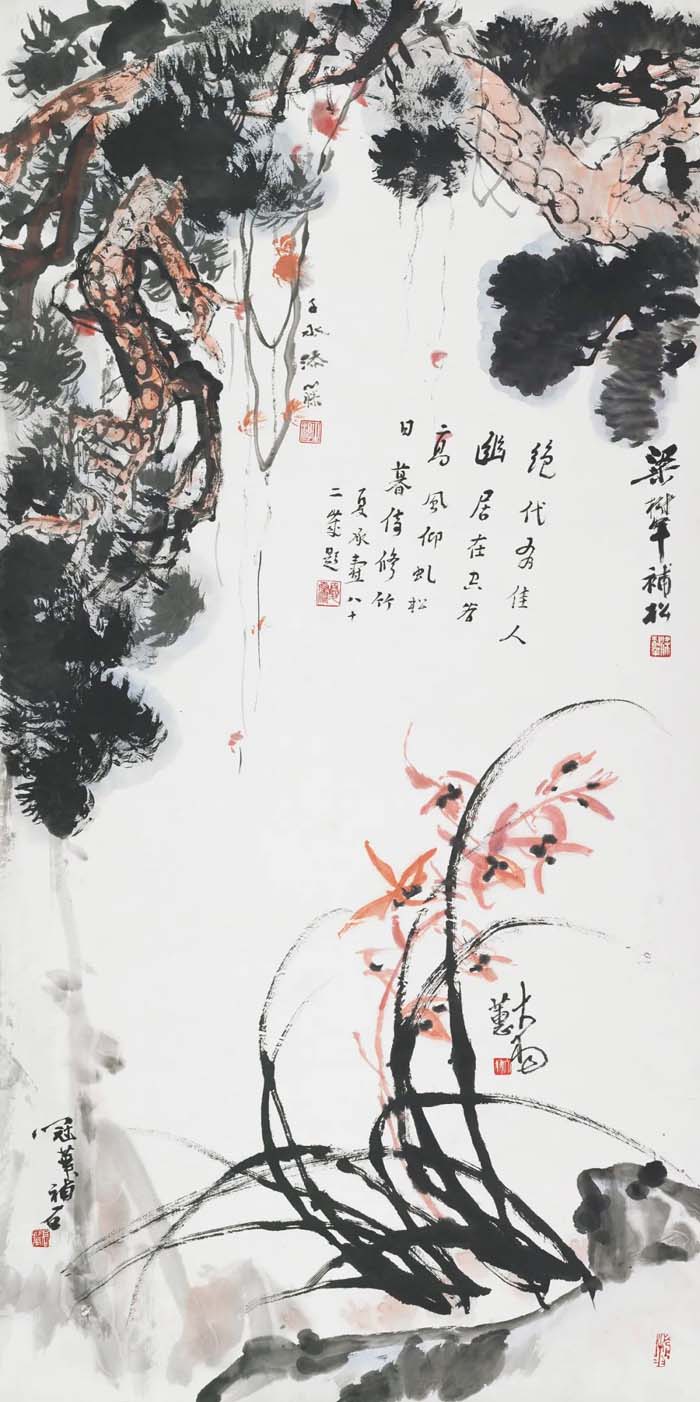 梁樹年補松
絕代有佳人
幽居在空谷
高風仰虬松
日暮倚修竹
夏承燾八十
二歲題
子水添藤
大羽
蕙
冠英補石